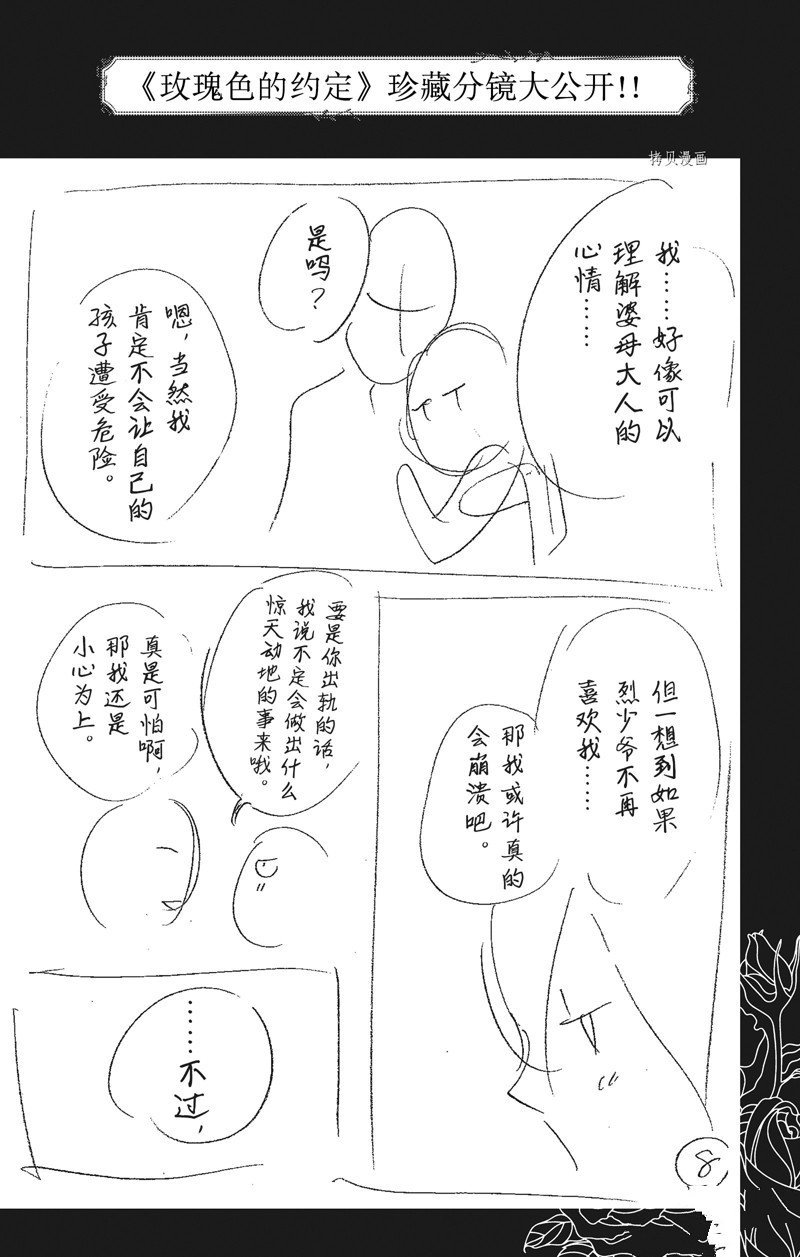 《玫瑰色的约定》珍藏分镜大公开!!
拷贝漫画
我……好像可以
理解婆母大人的
心情……
是吗？
嗯，当然我
肯定不会让自己的
孩子遭受危险。
但一想到如果
烈少爷不再
喜欢我……
那我或许真的
会崩溃吧。
要是你出轨的话，
我说不定会做出什么
惊天动地的事来哦。
真是可怕啊，
那我还是
小心为上。
……不过，
8